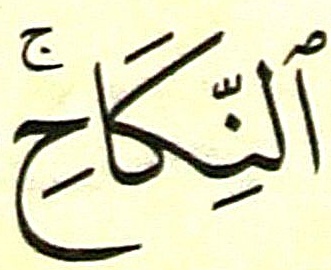 ٱلنِّكَاحِۚ